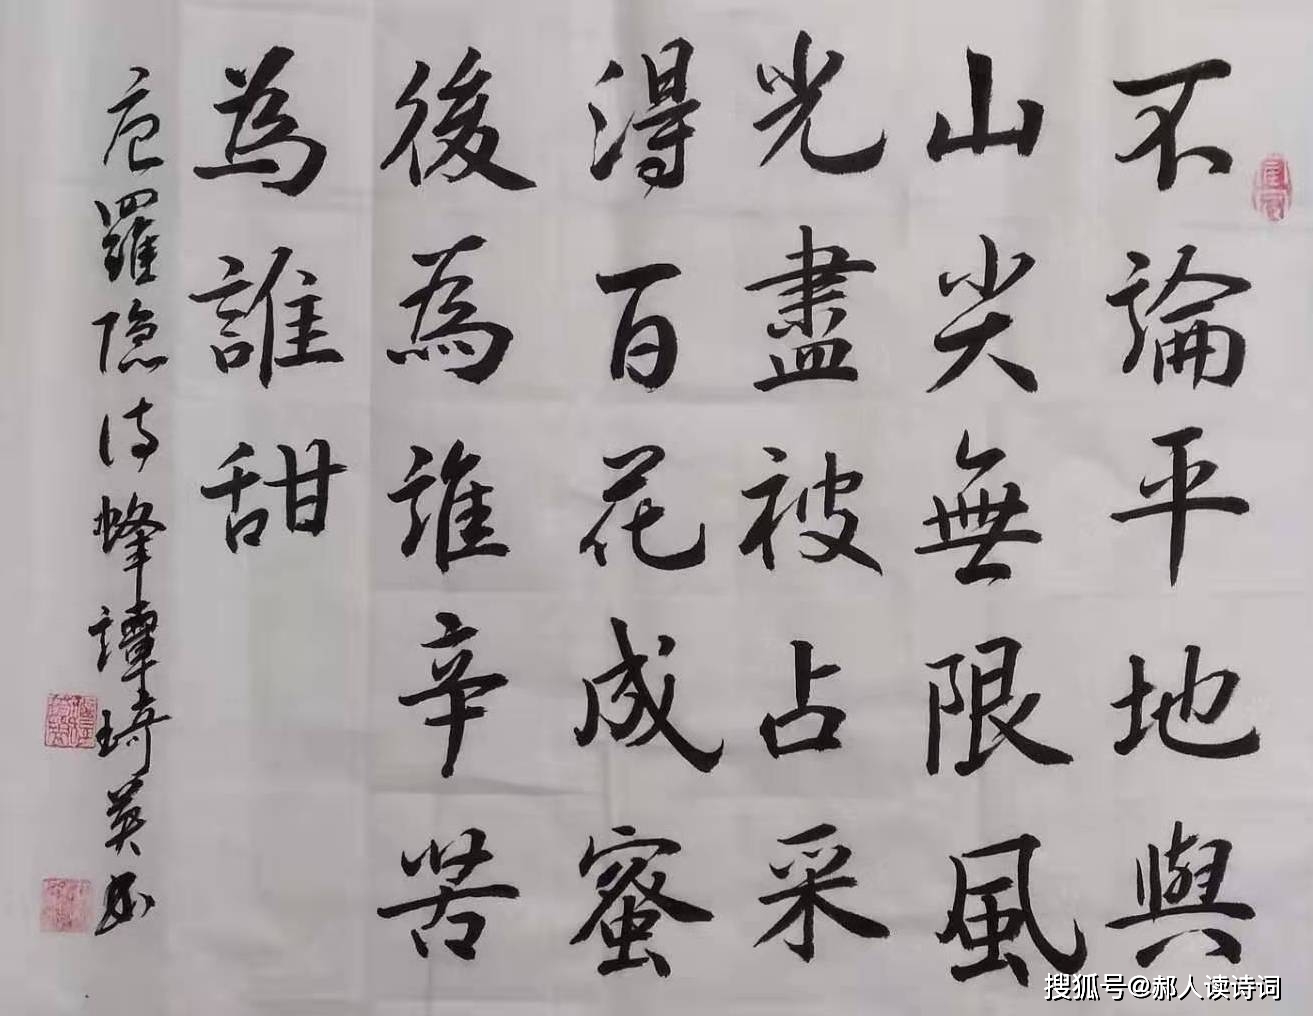 不論平地與
山尖無限風
光盡被占采
得百花成蜜
後為誰辛苦
為誰甜
唐羅隐诗蜂譚琦英书
搜狐号@郝人读诗词